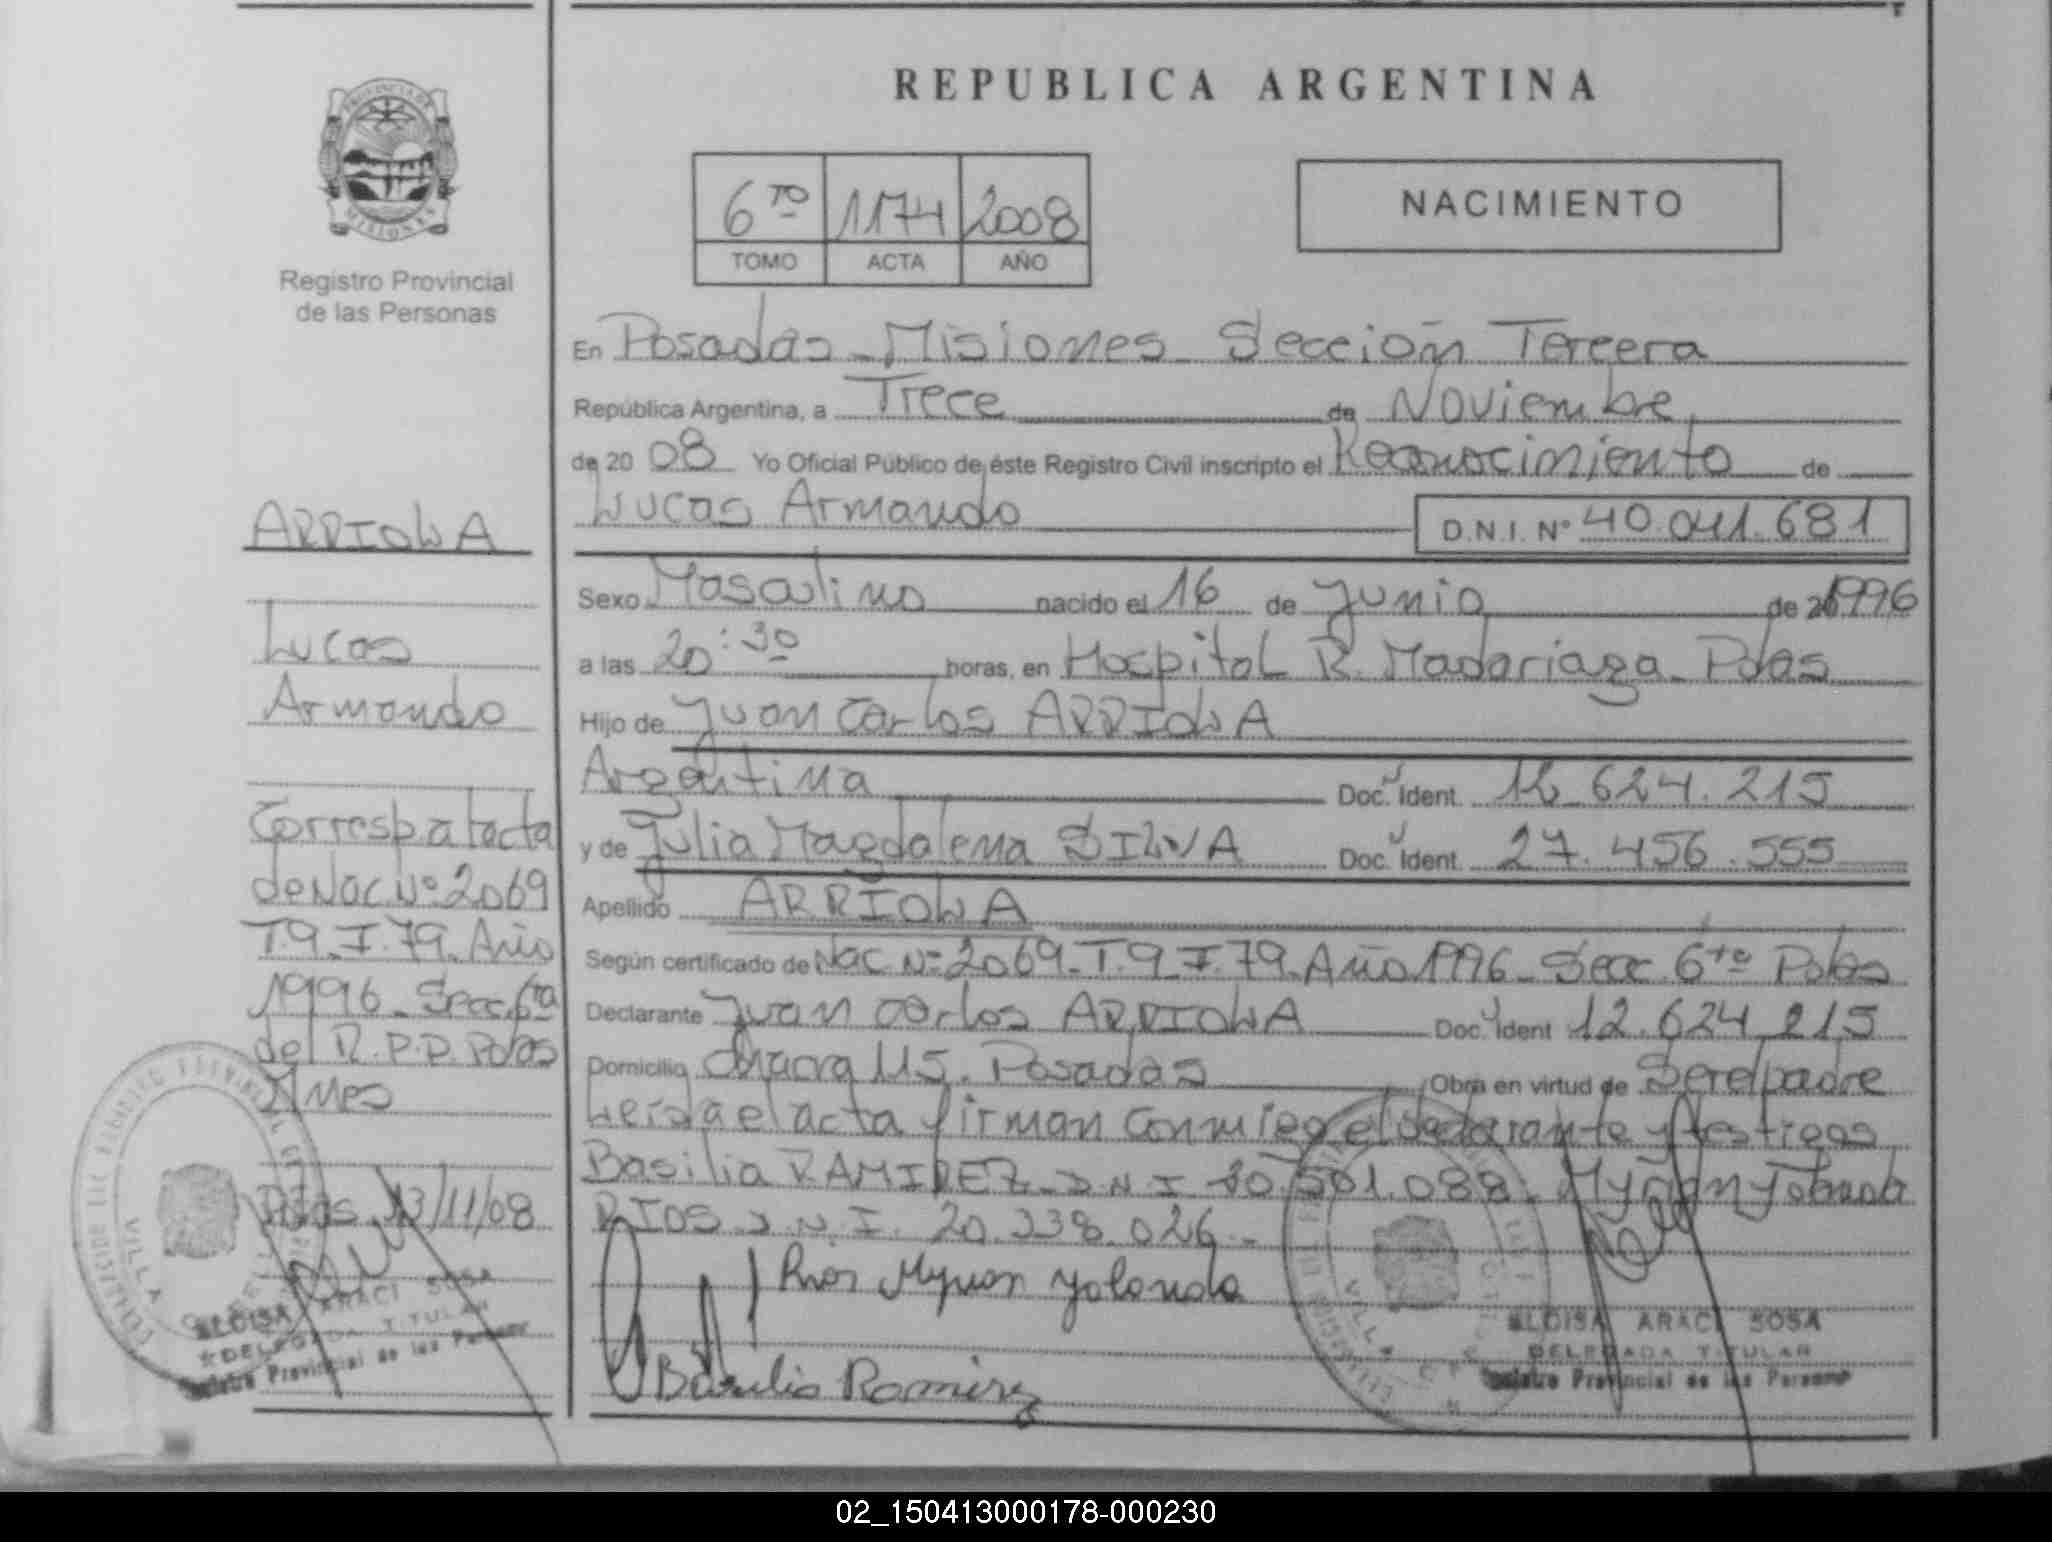 REPUBLICA ARGENTINA
PROVINCIA DE
MISIONES
Registro Provincial
de las Personas
6TO 1174 2008
TOMO ACTA AÑO
NACIMIENTO
En Posadas - Misiones - Sección Tercera
República Argentina, a Trece de Noviembre
de 20 08 Yo Oficial Público de éste Registro Civil inscripto el Reconocimiento de
Lucas Armando D.N.I. Nº 40.041.681
Sexo Masculino nacido el 16 de Junio de 1996
a las 20:30 horas, en Hospital R. Madariaga - Pdas
Hijo de Juan Carlos ARRIOLA
Argentina Doc. Ident. 12.624.215
y de Julia Magdalena SILVA Doc. Ident. 27.456.555
Apellido ARRIOLA
Según certificado de Nac. Nº 2069 - T. 9 - F. 79 - Año 1996 - Secc. 6ta Pdas
Declarante Juan Carlos ARRIOLA Doc. Ident 12.624.215
Domicilio Chacra 115 - Posadas Obra en virtud de Ser el padre
Leída el acta firman conmigo el declarante y testigos
Basilia RAMIREZ - D.N.I. .088 - Myrian Yolanda
RIOS D.N.I. 20.338.026 -
Rios Myrian Yolanda
Basilia Ramirez
ELOISA ARACI SOSA
DELEGADA TITULAR
Registro Provincial de las Personas
ARRIOLA
Lucas
Armando
Corresp. al acta
de Nac. Nº 2069
T. 9 - F. 79 - Año
1996 - Secc. 6ta
del R.P.P. Pdas
Mnes
Pdas 13/11/08
ELOISA ARACI SOSA
DELEGADA TITULAR
Registro Provincial de las Personas
02_150413000178-000230